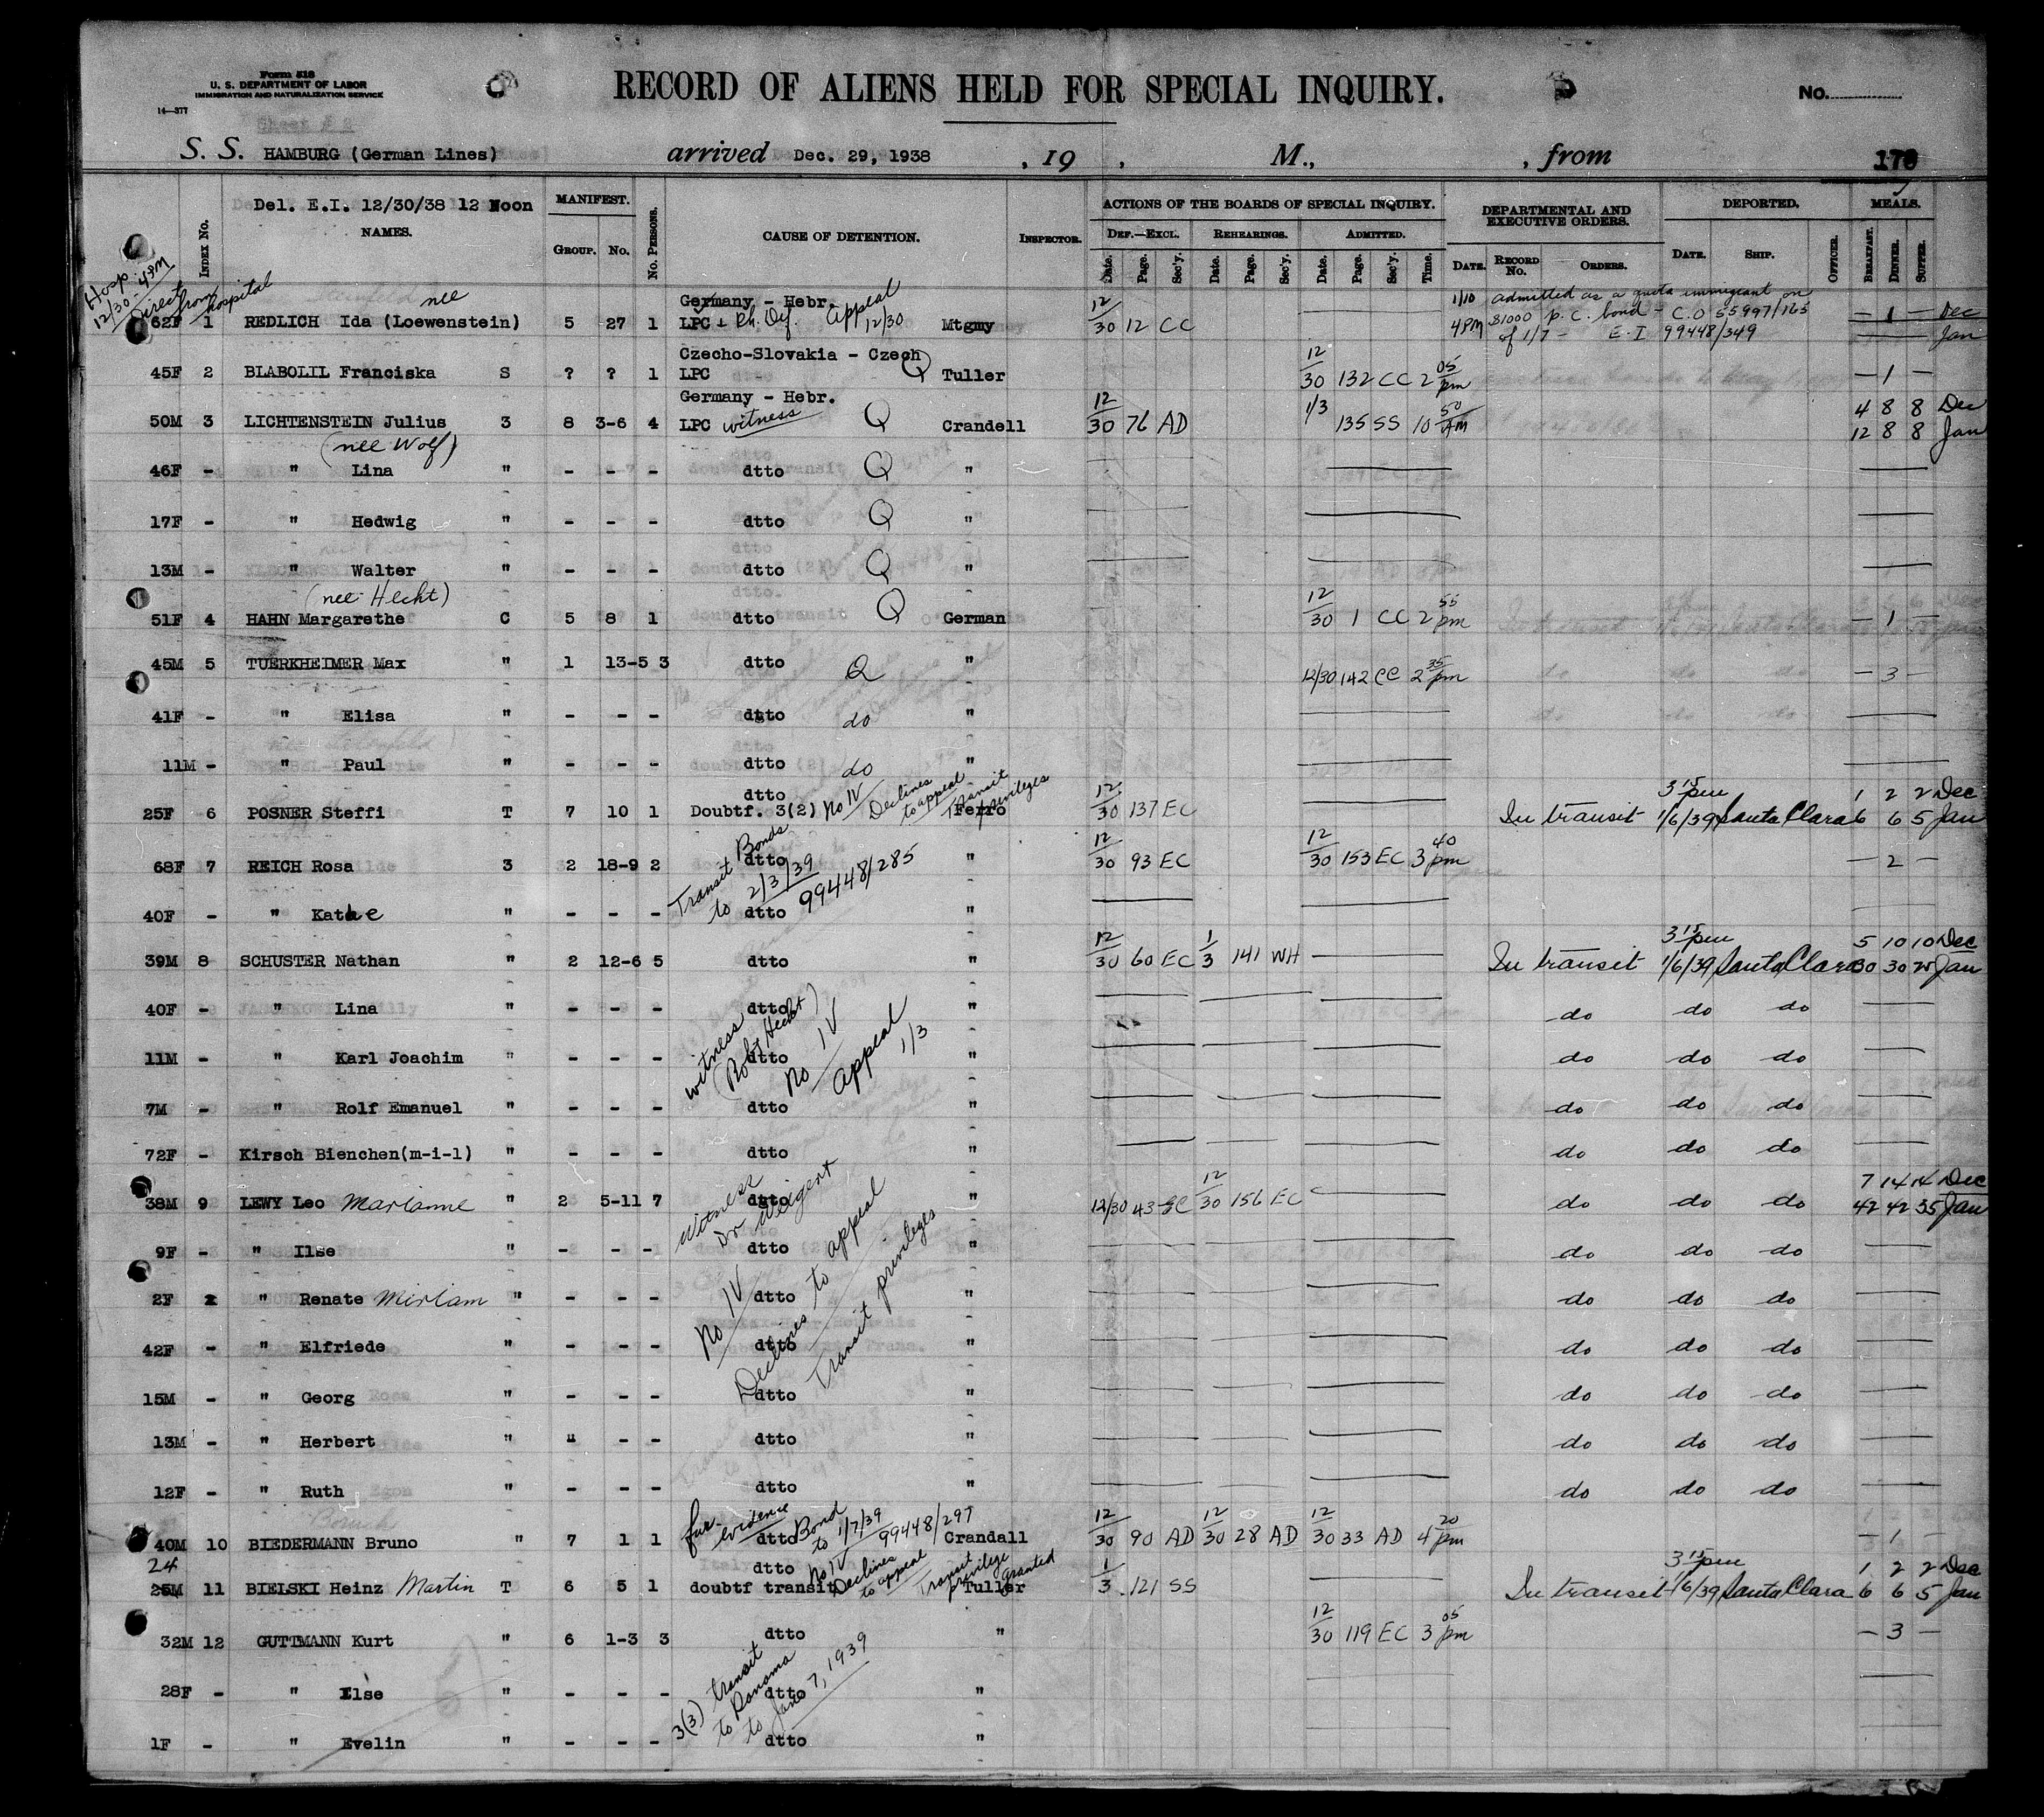 Form 518
U. S. DEPARTMENT OF LABOR
IMMIGRATION AND NATURALIZATION SERVICE
14—377
RECORD OF ALIENS HELD FOR SPECIAL INQUIRY.
No.
S. S. HAMBURG (German Lines) arrived Dec. 29, 1938 , 19 , M., , from 178
Del. E.I. 12/30/38 12 Noon
INDEX No. NAMES. MANIFEST. GROUP. No. No. PERSONS. CAUSE OF DETENTION. INSPECTOR.
ACTIONS OF THE BOARDS OF SPECIAL INQUIRY. DEF.—EXCL. Date. Page. Sec'y. REHEARINGS. Date. Page. Sec'y. ADMITTED. Date. Page. Sec'y. Time.
DEPARTMENTAL AND EXECUTIVE ORDERS. DATE. RECORD No. ORDERS. DEPORTED. DATE. SHIP. OFFICER. MEALS. BREAKFAST. DINNER. SUPPER.
Hosp. 12/30 - 4PM
Direct from hospital
nee Germany - Hebr. Appeal 12/30
62F 1 REDLICH Ida (Loewenstein) 5 27 1 LPC + Ph. Def. Mtgmy 12/30 12 CC 1/10 4PM admitted as a quota immigrant on
$1000 P.C. bond - C.O 55997/165
of 1/7 - E.I 99448/349
— 1 — Dec
Jan
Czecho-Slovakia - Czech
45F 2 BLABOLIL Franciska S ? ? 1 LPC Q Tuller 12/30 132 CC 2 05 pm — 1 —
Germany - Hebr.
50M 3 LICHTENSTEIN Julius 3 8 3-6 4 LPC witness Q Crandell 12/30 76 AD 1/3 135 SS 10 50 AM 4 8 8 Dec
12 8 8 Jan
(nee Wolf)
46F - " Lina " - - - dtto Q "
17F - " Hedwig " - - - dtto Q "
13M - " Walter " - - - dtto Q "
(nee Hecht)
51F 4 HAHN Margarethe C 5 8 1 dtto Q German 12/30 1 CC 2 55 pm — 1 —
45M 5 TUERKHEIMER Max " 1 13-5 3 dtto Q " 12/30 142 CC 2 35 pm — 3 —
41F - " Elisa " - - - dtto do "
11M - " Paul " - - - dtto do "
dtto No IV Declines to appeal Transit privileges
25F 6 POSNER Steffi T 7 10 1 Doubtf. 3(2) Ferro 12/30 137 EC In transit 3 15 pm 1/6/39 Santa Clara 1 2 2 Dec
6 6 5 Jan
68F 7 REICH Rosa 3 2 18-9 2 dtto " 12/30 93 EC 12/30 153 EC 3 40 pm — 2 —
Transit Bonds to 2/3/39 99448/285
40F - " Kathe " - - - dtto "
39M 8 SCHUSTER Nathan " 2 12-6 5 dtto " 12/30 60 EC 1/3 141 WH In transit 3 15 pm 1/6/39 Santa Clara 5 10 10 Dec
30 30 25 Jan
40F - " Lina " - - - dtto " do do do
witness (Roby Hecht) No IV Appeal 1/3
11M - " Karl Joachim " - - - dtto " do do do
7M - " Rolf Emanuel " - - - dtto " do do do
72F - Kirsch Bienchen(m-i-l) " - - - dtto " do do do
38M 9 LEWY Leo Marianne " 2 5-11 7 dtto " 12/30 43 EC 12/30 156 EC do do do 7 14 14 Dec
42 42 35 Jan
Witness Dr Weigert
9F - " Ilse " - - - dtto " do do do
No IV Declines to appeal Transit privileges
2F " Renate Miriam " - - - dtto " do do do
42F - " Elfriede " - - - dtto " do do do
15M - " Georg " - - - dtto " do do do
13M - " Herbert " " - - dtto " do do do
12F - " Ruth " - - - dtto " do do do
fur. evidence Bond to 1/7/39 99448/297
40M 10 BIEDERMANN Bruno " 7 1 1 dtto Crandall 12/30 90 AD 12/30 28 AD 12/30 33 AD 4 20 pm — 1 —
24 dtto No IV Declines to appeal Transit privilege granted
25M 11 BIELSKI Heinz Martin T 6 5 1 doubtf transit Tuller 1/3 121 SS In transit 3 15 pm 1/6/39 Santa Clara 1 2 2 Dec
6 6 5 Jan
32M 12 GUTTMANN Kurt " 6 1-3 3 dtto " 12/30 119 EC 3 05 pm — 3 —
3(3) transit to Panama to Jan 7, 1939
28F - " Ilse " - - - dtto "
1F - " Evelin " - - - dtto "